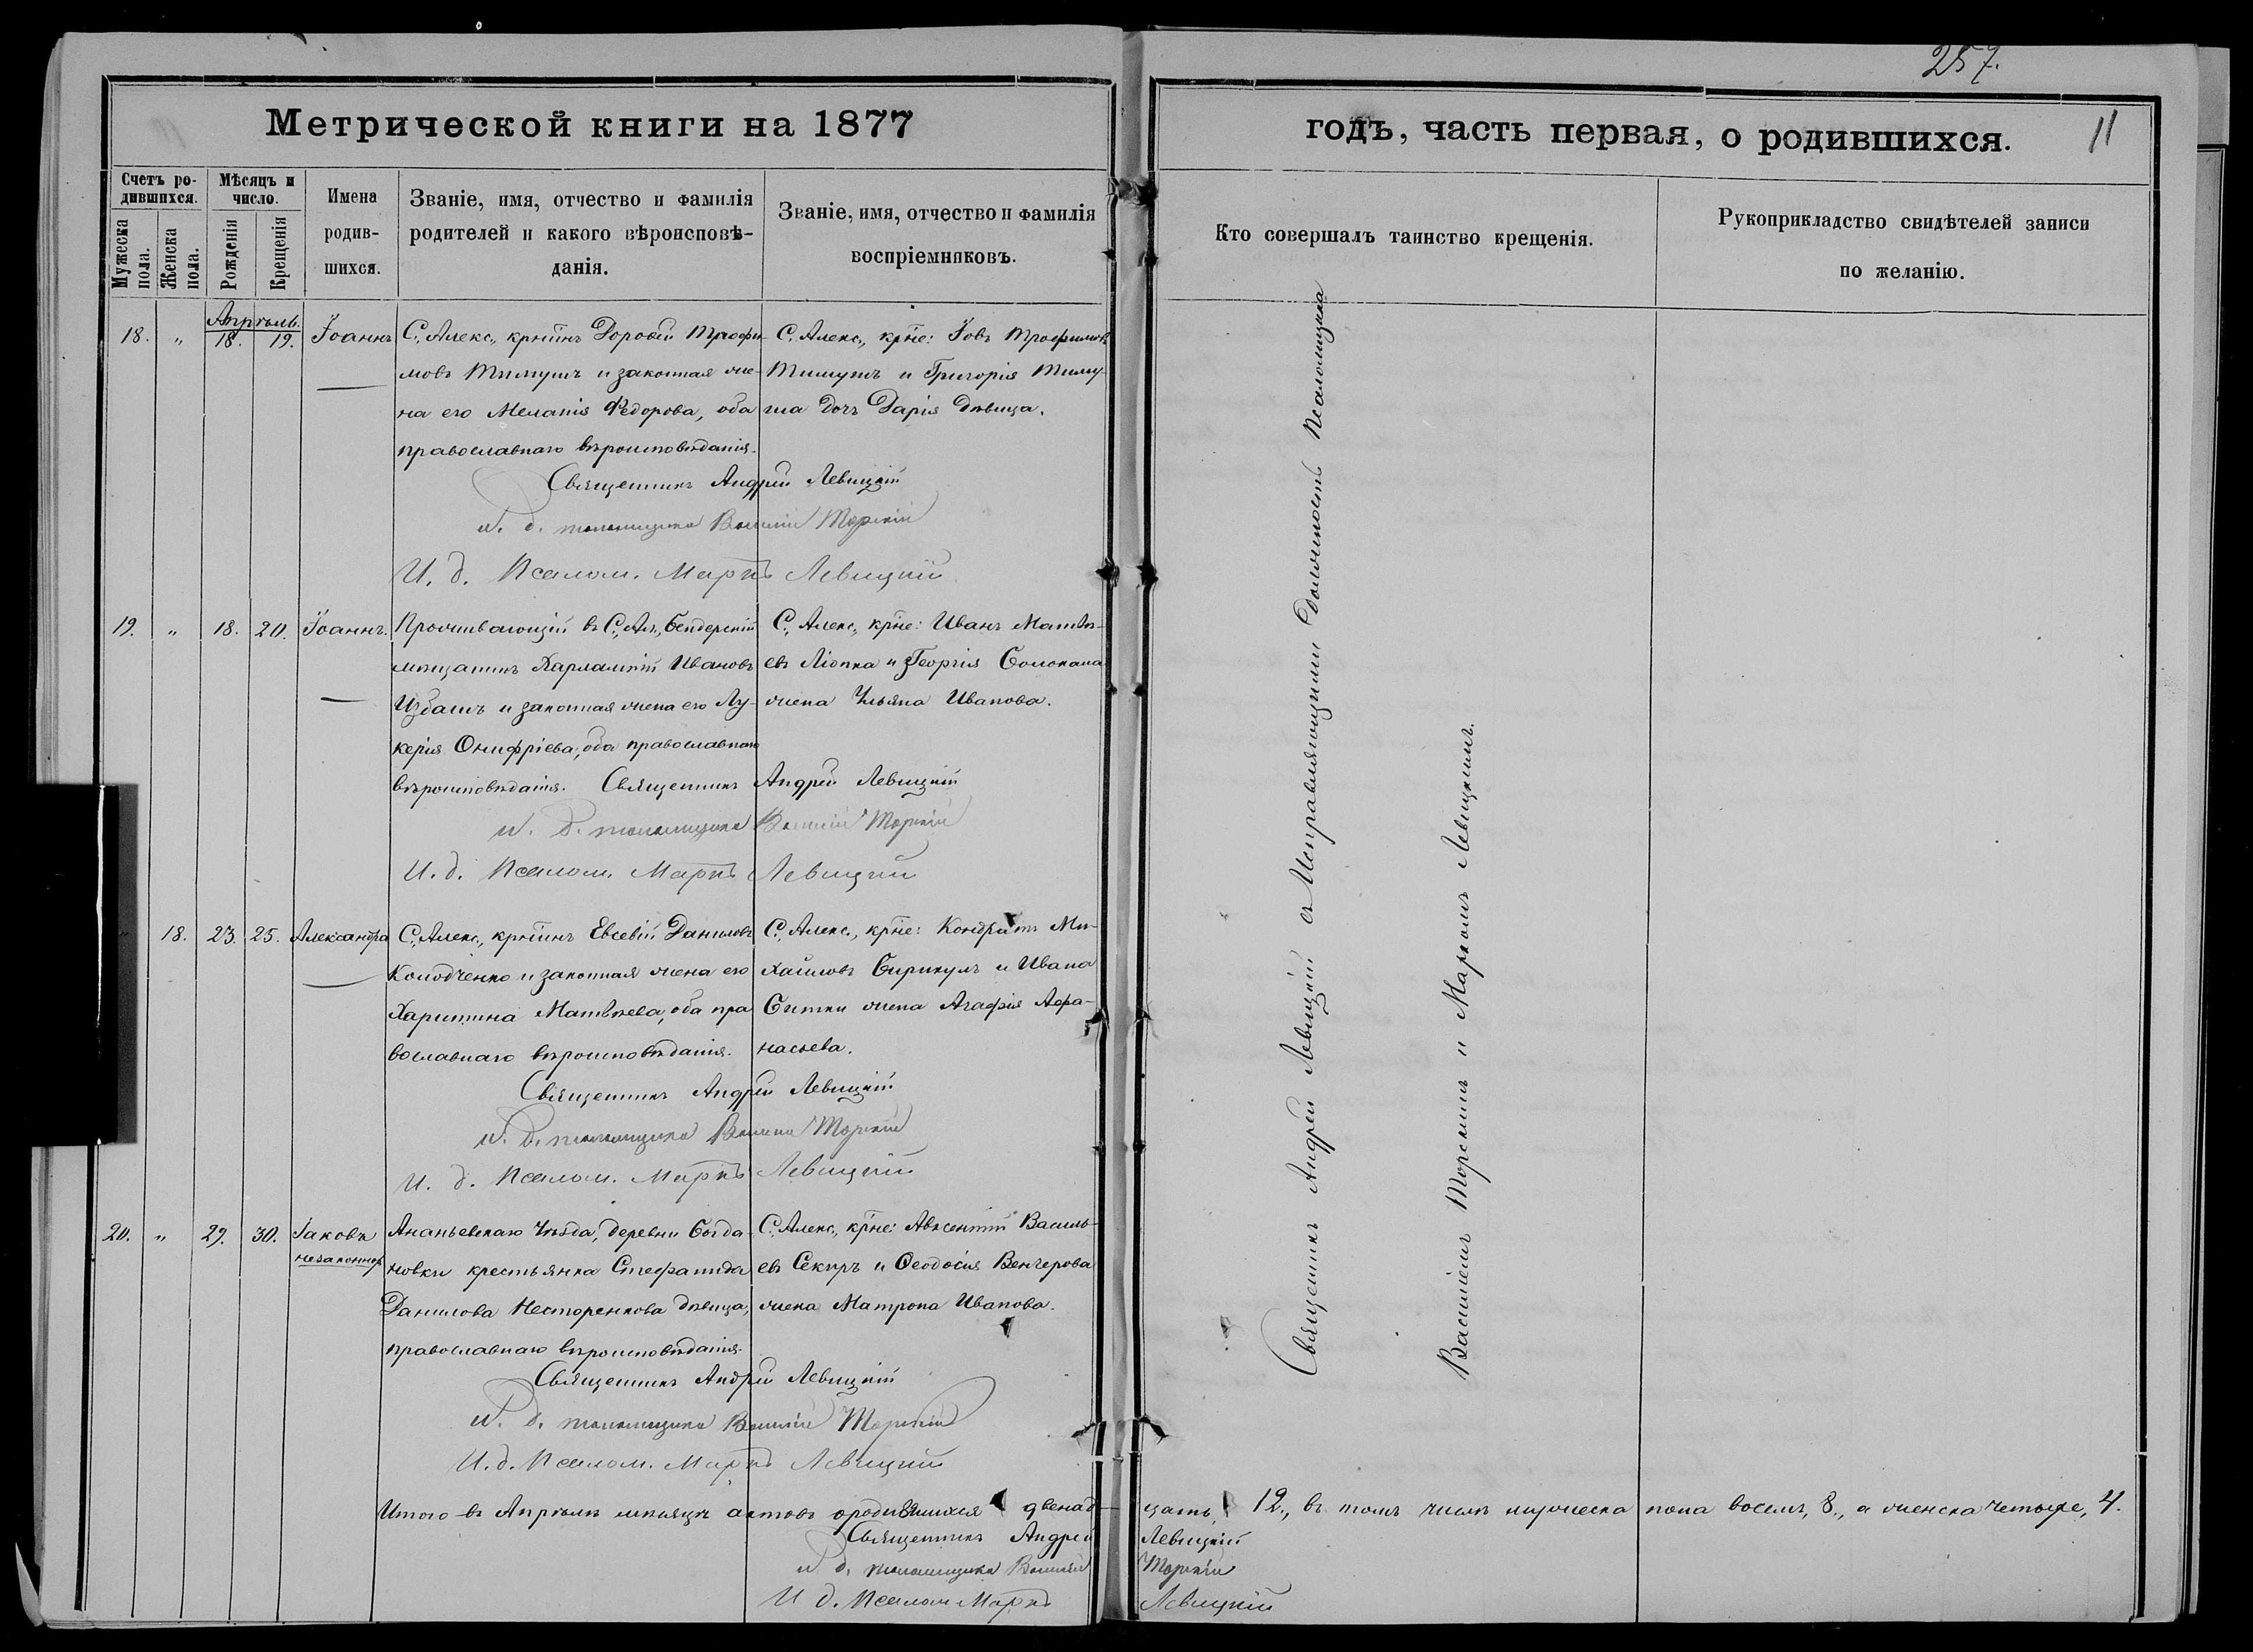 257.
11
Метрической книги на 1877
годъ, часть первая, о родившихся.
Счетъ ро-
дившихся.
Мужеска
пола.
Женска
пола.
Мѣсяцъ и
число.
Рожденія
Крещенія
Имена
родив-
шихся.
Званіе, имя, отчество и фамилія
родителей и какого вѣроисповѣ-
данія.
Званіе, имя, отчество и фамилія
воспріемниковъ.
Кто совершалъ таинство крещенія.
Рукоприкладство свидѣтелей записи
по желанію.
Апрѣль.
18. „ 18. 19. Іоаннъ
С. Алекс., кр͠тинъ Дороѳей Трофи-
мовъ Тимушъ и законная же-
на его Меланія Федорова, оба
православнаго вѣроисповѣданія.
С. Алекс., кр͠не: Іовъ Трофимовъ
Тимушъ и Григорія Тиму-
ша дочь Дарія дѣвица.
Священникъ Андрей Левицкій
И. д. псаломщика Василій Торскій
И. д. Псалом. Маркъ Левицкій
19. „ 18. 20. Іоаннъ.
Проживающій въ С. Ал., Бендерскій
мѣщанинъ Харлампій Ивановъ
Избашъ и законная жена его Лу-
керія Онифріева, оба православнаго
вѣроисповѣданія.
С. Алекс., кр͠не: Иванъ Матвѣ-
евъ Ліопка и Георгія Солокана
жена Ульяна Иванова.
Священникъ Андрей Левицкій
И. д. псаломщика Василій Торскій
И. д. Псалом. Маркъ Левицкій
„ 18. 23. 25. Александра
С. Алекс., кр͠тинъ Евсевій Даниловъ
Колодченко и законная жена его
Харитина Матвѣева, оба пра
вославнаго вѣроисповѣданія.
С. Алекс., кр͠не: Кондратъ Ми-
хайловъ Бирикулъ и Ивана
Ситки жена Агафія Афа-
насьева.
Священникъ Андрей Левицкій
И. д. псаломщика Василій Торскій
И. д. Псалом. Маркъ Левицкій
20. „ 29. 30. Іаковъ
незаконнор.
Ананьевскаго Уѣзда, деревни Богда-
новки крестьянка Стефанида
Данилова Несторенкова дѣвица,
православнаго вѣроисповѣданія.
С. Алекс., кр͠не: Авксентій Василь-
евъ Секиръ и Ѳеодосія Венгерова
жена Матрона Иванова.
Священникъ Андрей Левицкій
И. д. псаломщика Василій Торскій
И. д. Псалом. Маркъ Левицкій
Священникъ Андрей Левицкій съ Исправляющими должность Псаломщика
Василіемъ Торскимъ и Маркомъ Левицкимъ.
Итого въ Апрѣлѣ мѣсяцѣ актовъ о родившихся двенад-цать, 12., въ томъ числѣ мужеска пола восемь, 8., а женска четыре, 4.
Священникъ Андрей Левицкій
И д. псаломщика Василій Торскій
И д. Псалом Маркъ Левицкій